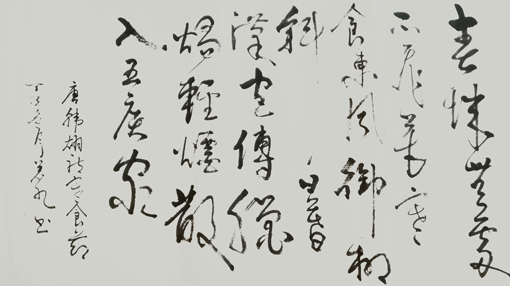 春城無處
不飛花寒
食東風御柳
斜日暮
漢宮傳蠟
燭輕煙散
入五侯家
唐韓翃詩寒食節
月書